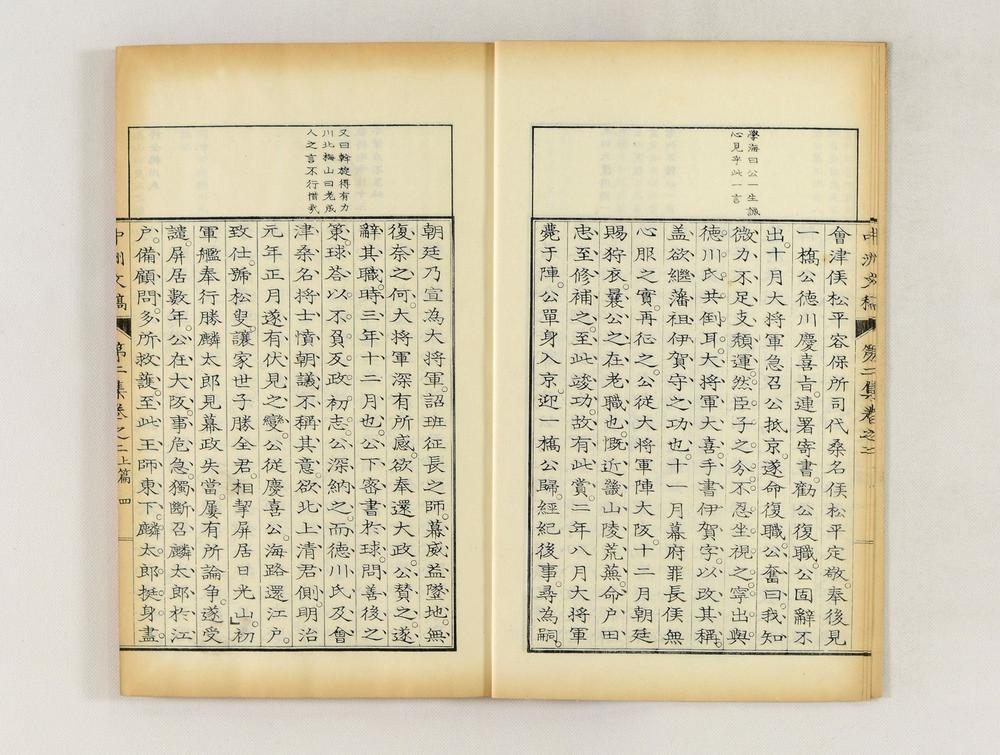 學海曰公一生誠
心見乎此一言
會津侯松平容保所司代桑名侯松平定敬。奉後見
一橋公德川慶喜旨。連署寄書。勸公復職。公固辭不
出。十月大將軍急召公抵京。遂命復職。公奮曰。我知
微力不足支頹運。然臣子之分。不忍坐視之。寧出與
德川氏共倒耳。大將軍大喜。手書伊賀字。以改其稱。
蓋欲繼藩祖伊賀守之功也。十一月幕府罪長侯無
心服之實。再征之。公從大將軍陣大阪。十二月朝廷
賜狩衣。曩公之在老職也。慨近畿山陵荒蕪。命戶田
忠至修補之。至此竣功。故有此賞。二年八月大將軍
薨于陣。公單身入京。迎一橋公歸。經紀後事。尋為嗣。
中洲文稿
第二集卷之二
又曰斡旋得有力
川北梅山曰老成
人之言不行惜哉
朝廷乃宣為大將軍。詔班征長之師。幕威益墜地。無
復奈之何。大將軍深有所感。欲奉還大政。公贊之。遂
辭其職。時三年十二月也。公下密書於球。問善後之
策。球答以不負反政初志。公深納之。而德川氏及會
津桑名將士憤朝議不稱其意。欲北上清君側。明治
元年正月遂有伏見之變。公從慶喜公海路還江戶。
致仕。號松叟。讓家世子勝全君。相挈屏居日光山。」初
軍艦奉行勝麟太郎見幕政失當。屢有所論爭。遂受
譴。屏居數年。公在大阪。事危急。獨斷召麟太郎於江
戶。備顧問。多所救護。至此王師東下。麟太郎挺身盡
中洲文稿
第二集卷之二上篇
四